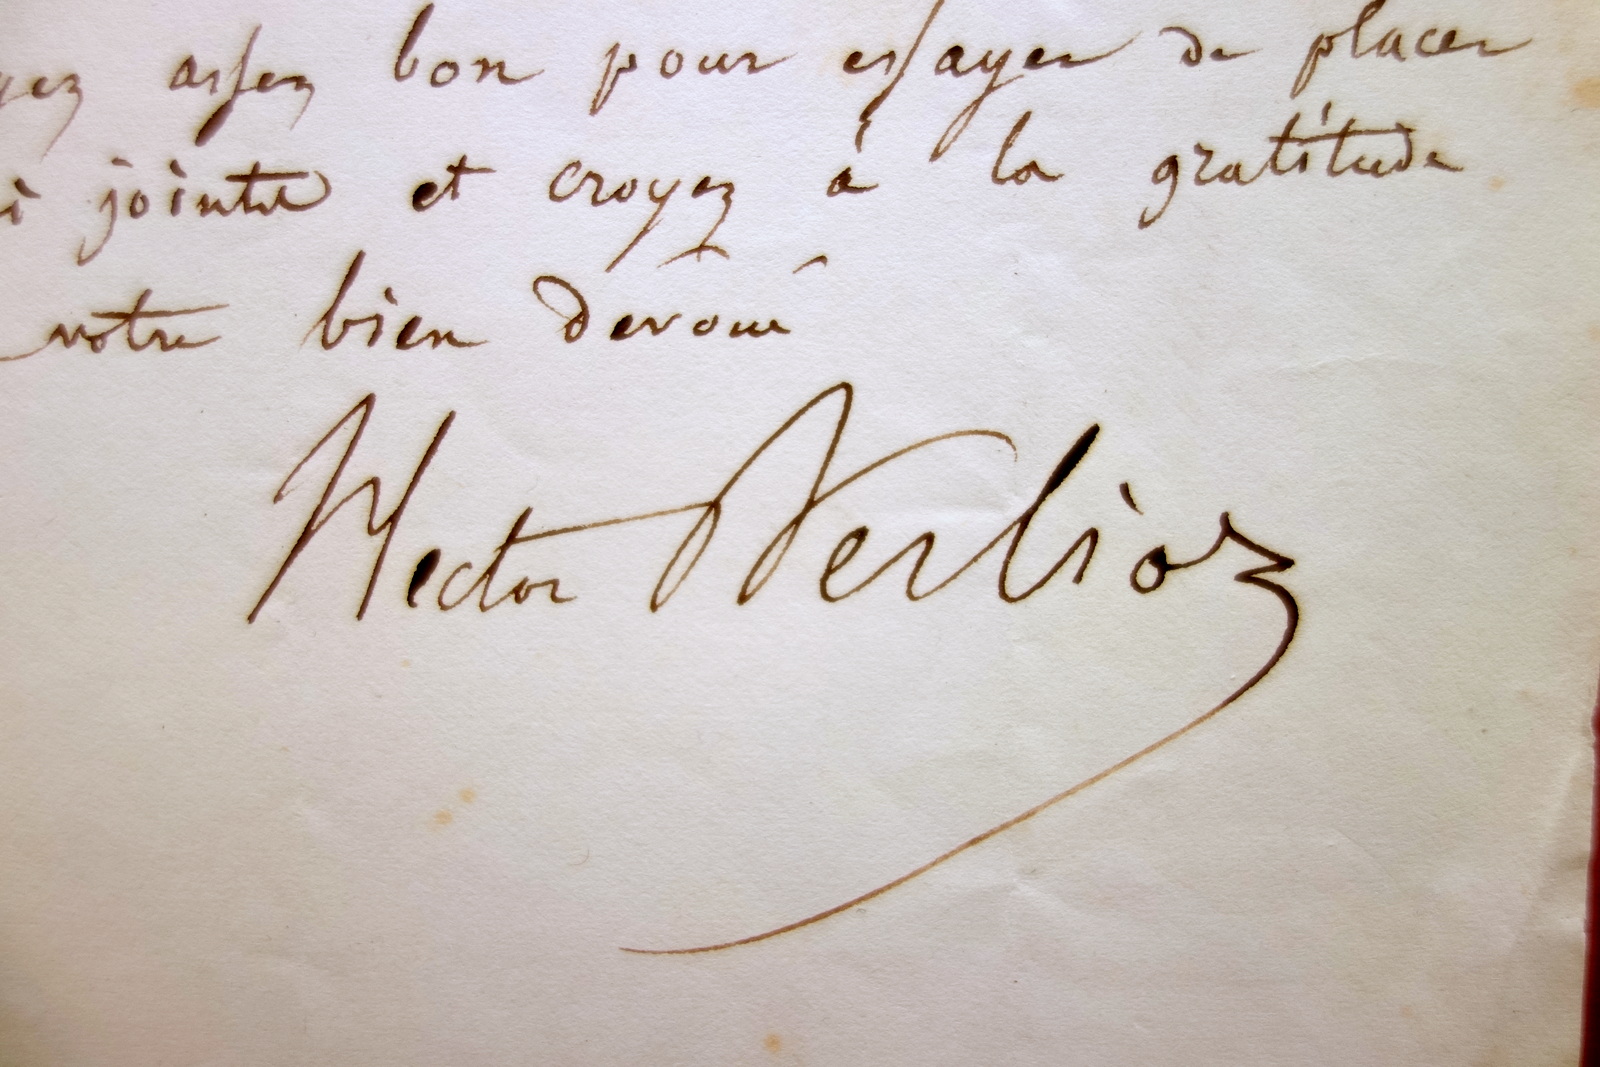 yez assez bon pour essayer de placer
i jointe et croyez à la gratitude
votre bien dévoué
Hector Berlioz